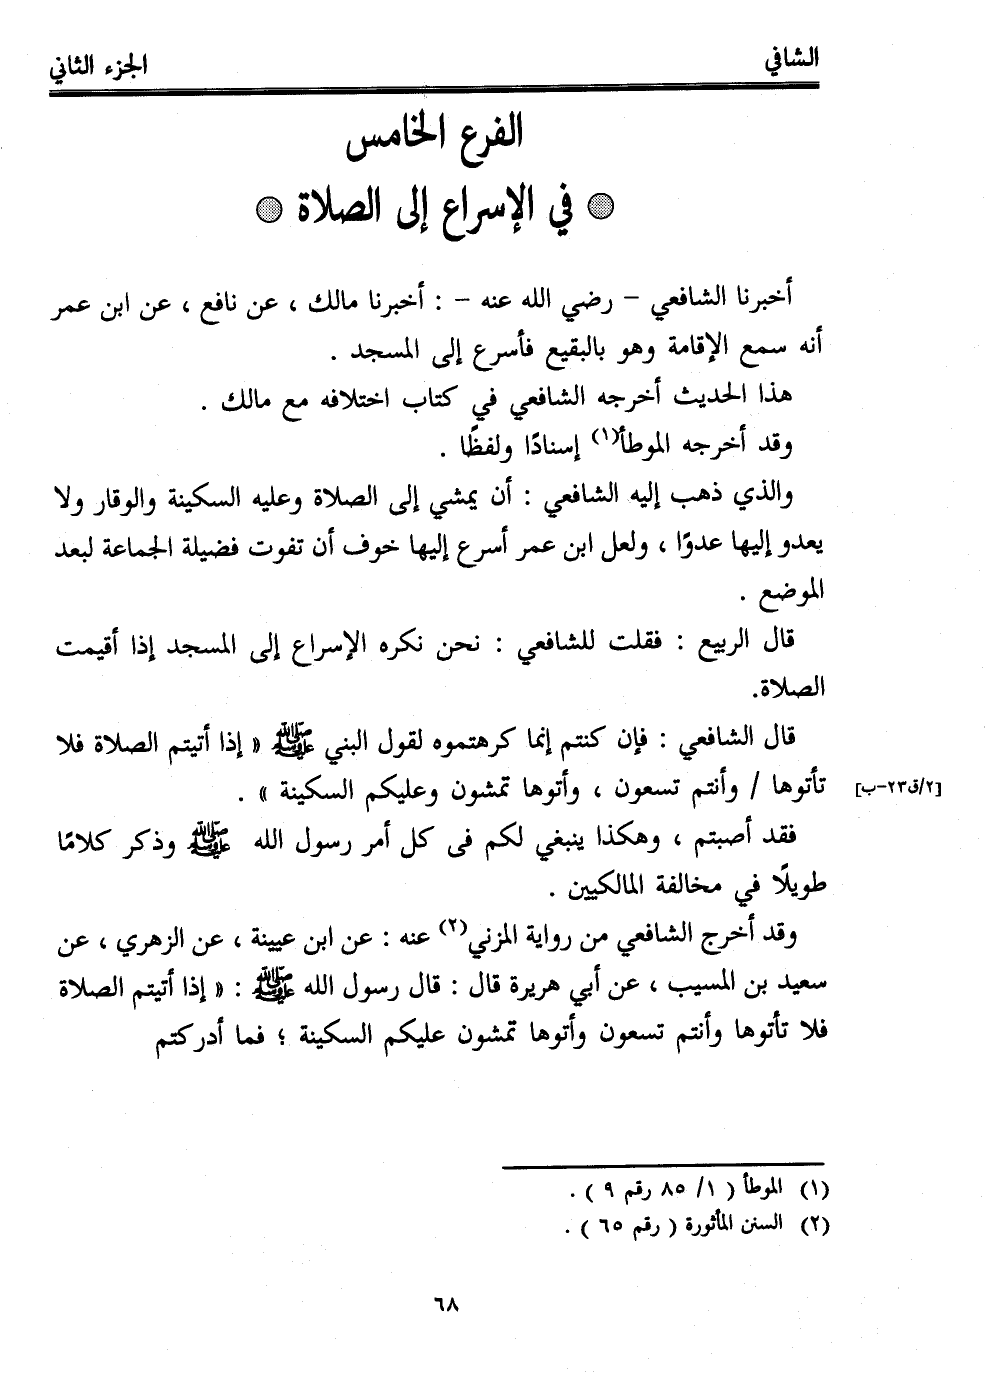 الشافي
الجزء الثاني
الفرع الخامس
في الإسراع إلى الصلاة
أخبرنا الشافعي - رضي الله عنه - : أخبرنا مالك ، عن نافع ، عن ابن عمر
أنه سمع الإقامة وهو بالبقيع فأسرع إلى المسجد .
هذا الحديث أخرجه الشافعي في كتاب اختلافه مع مالك .
وقد أخرجه الموطأ(١) إسنادًا ولفظًا .
والذي ذهب إليه الشافعي : أن يمشي إلى الصلاة وعليه السكينة والوقار ولا
يعدو إليها عدوًا ، ولعل ابن عمر أسرع إليها خوف أن تفوت فضيلة الجماعة لبعد
الموضع .
قال الربيع : فقلت للشافعي : نحن نكره الإسراع إلى المسجد إذا أقيمت
الصلاة.
قال الشافعي : فإن كنتم إنما كرهتموه لقول البني ﷺ « إذا أتيتم الصلاة فلا
تأتوها / وأنتم تسعون ، وأتوها تمشون وعليكم السكينة » .
[٢/ق٢٣-ب]
فقد أصبتم ، وهكذا ينبغي لكم فى كل أمر رسول الله ﷺ وذكر كلامًا
طويلًا في مخالفة المالكيين .
وقد أخرج الشافعي من رواية المزني(٢) عنه : عن ابن عيينة ، عن الزهري ، عن
سعيد بن المسيب ، عن أبي هريرة قال : قال رسول الله ﷺ : « إذا أتيتم الصلاة
فلا تأتوها وأنتم تسعون وأتوها تمشون عليكم السكينة ؛ فما أدركتم
(١) الموطأ ( ١/ ٨٥ رقم ٩ ) .
(٢) السنن المأثورة ( رقم ٦٥ ) .
٦٨